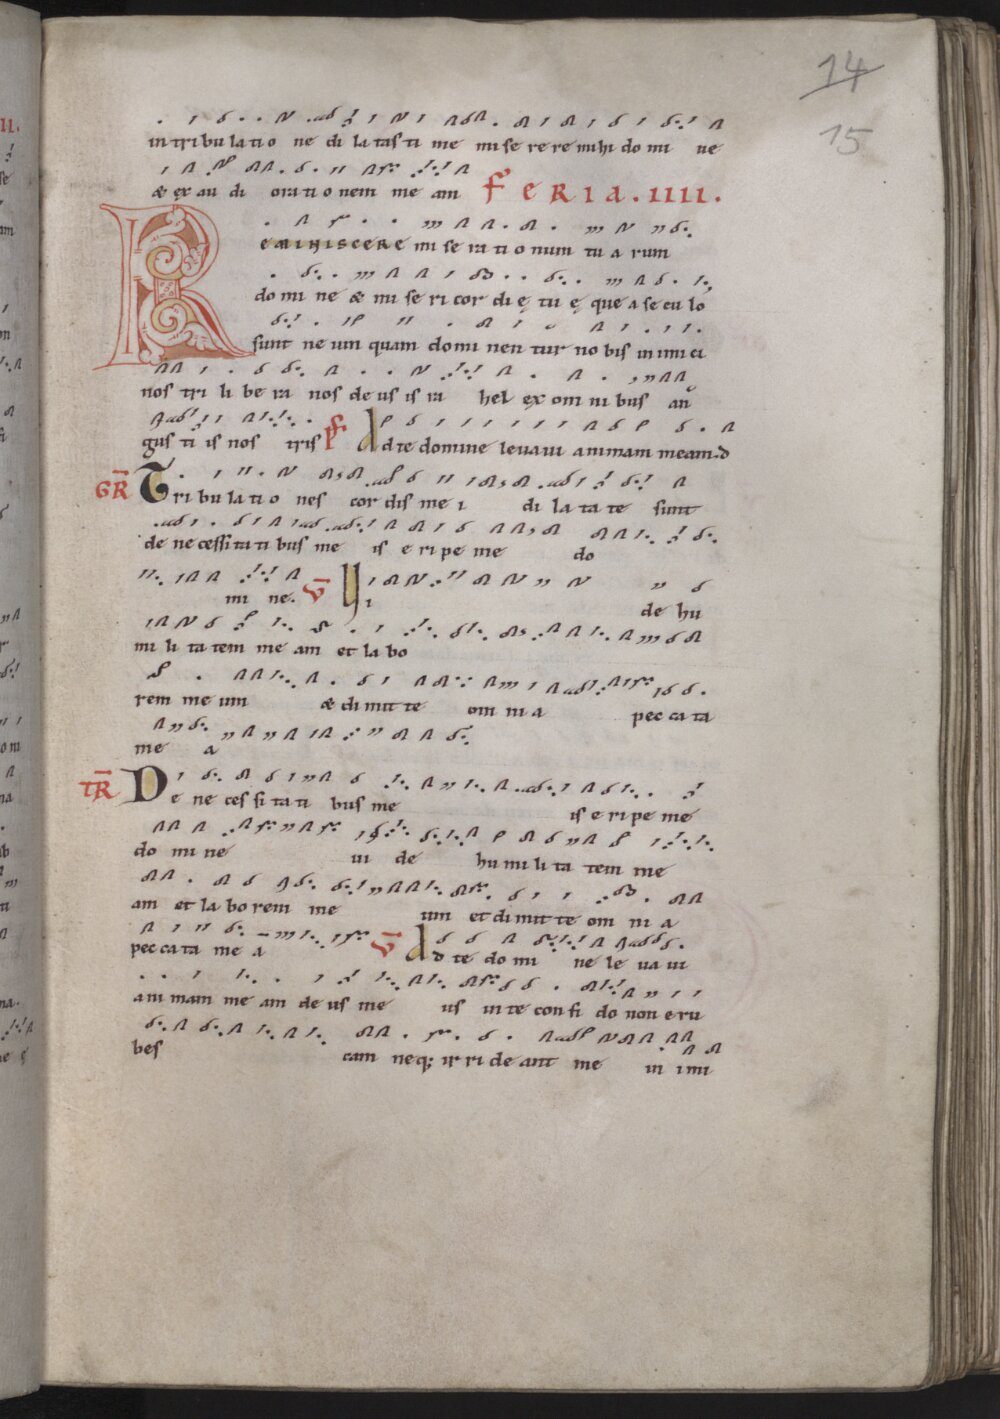 14
15
in tri bu la ti o ne di la tas ti me mi se re re mihi do mi ne
& ex au di ora ti o nem me am FERIA . IIII .
REMINISCERE mi se ra ti o num tu a rum
do mi ne & mi se ri cor di ę tu ę que a se cu lo
sunt ne um quam do mi nen tur no bis in imi ci
nos tri li be ra nos de us is ra hel ex om ni bus an
gus ti is nos tris Ps Ad te domine levavi animam meam. d
GR Tri bu la ti o nes cor dis me i di la ta te sunt
de ne cessi ta ti bus me is e ri pe me do
mi ne. V Vi de hu
mi li ta tem me am et la bo
rem me um & di mit te om ni a pec ca ta
me a
TR De ne ces si ta ti bus me is e ri pe me
do mi ne vi de hu mi li ta tem me
am et la bo rem me um et di mit te om ni a
pec ca ta me a V Ad te do mi ne le va vi
ani mam me am de us me us in te con fi do non e ru
bes cam neq; ir ri de ant me in imi